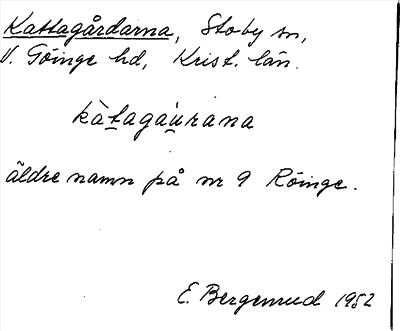 Kattagårdarna, Stoby sn,
V. Göinge hd, Krist. län.
kàt̲agáu̲rana
äldre namn på nr 9 Röinge.
E. Bergenrud 1952